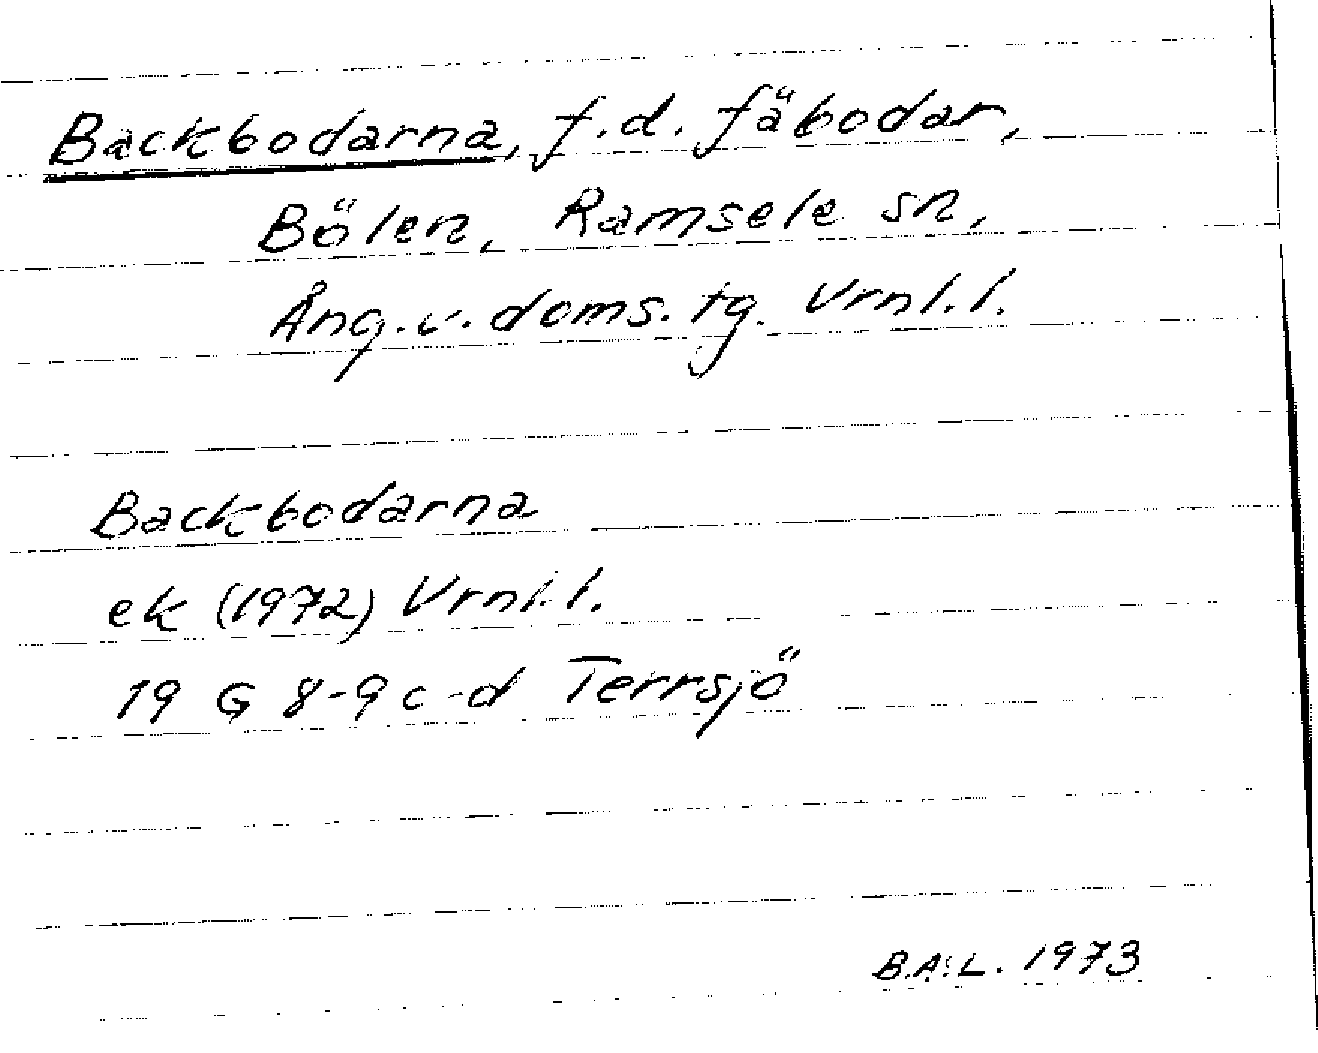 Backbodarna, f.d. fäbodar,
Bölen, Ramsele sn,
Ång.v. doms. tg. Vrnl.l.
Backbodarna
ek (1972) Vrnl.l.
19 G 8-9 c-d Terrsjö
B.A.L. 1973